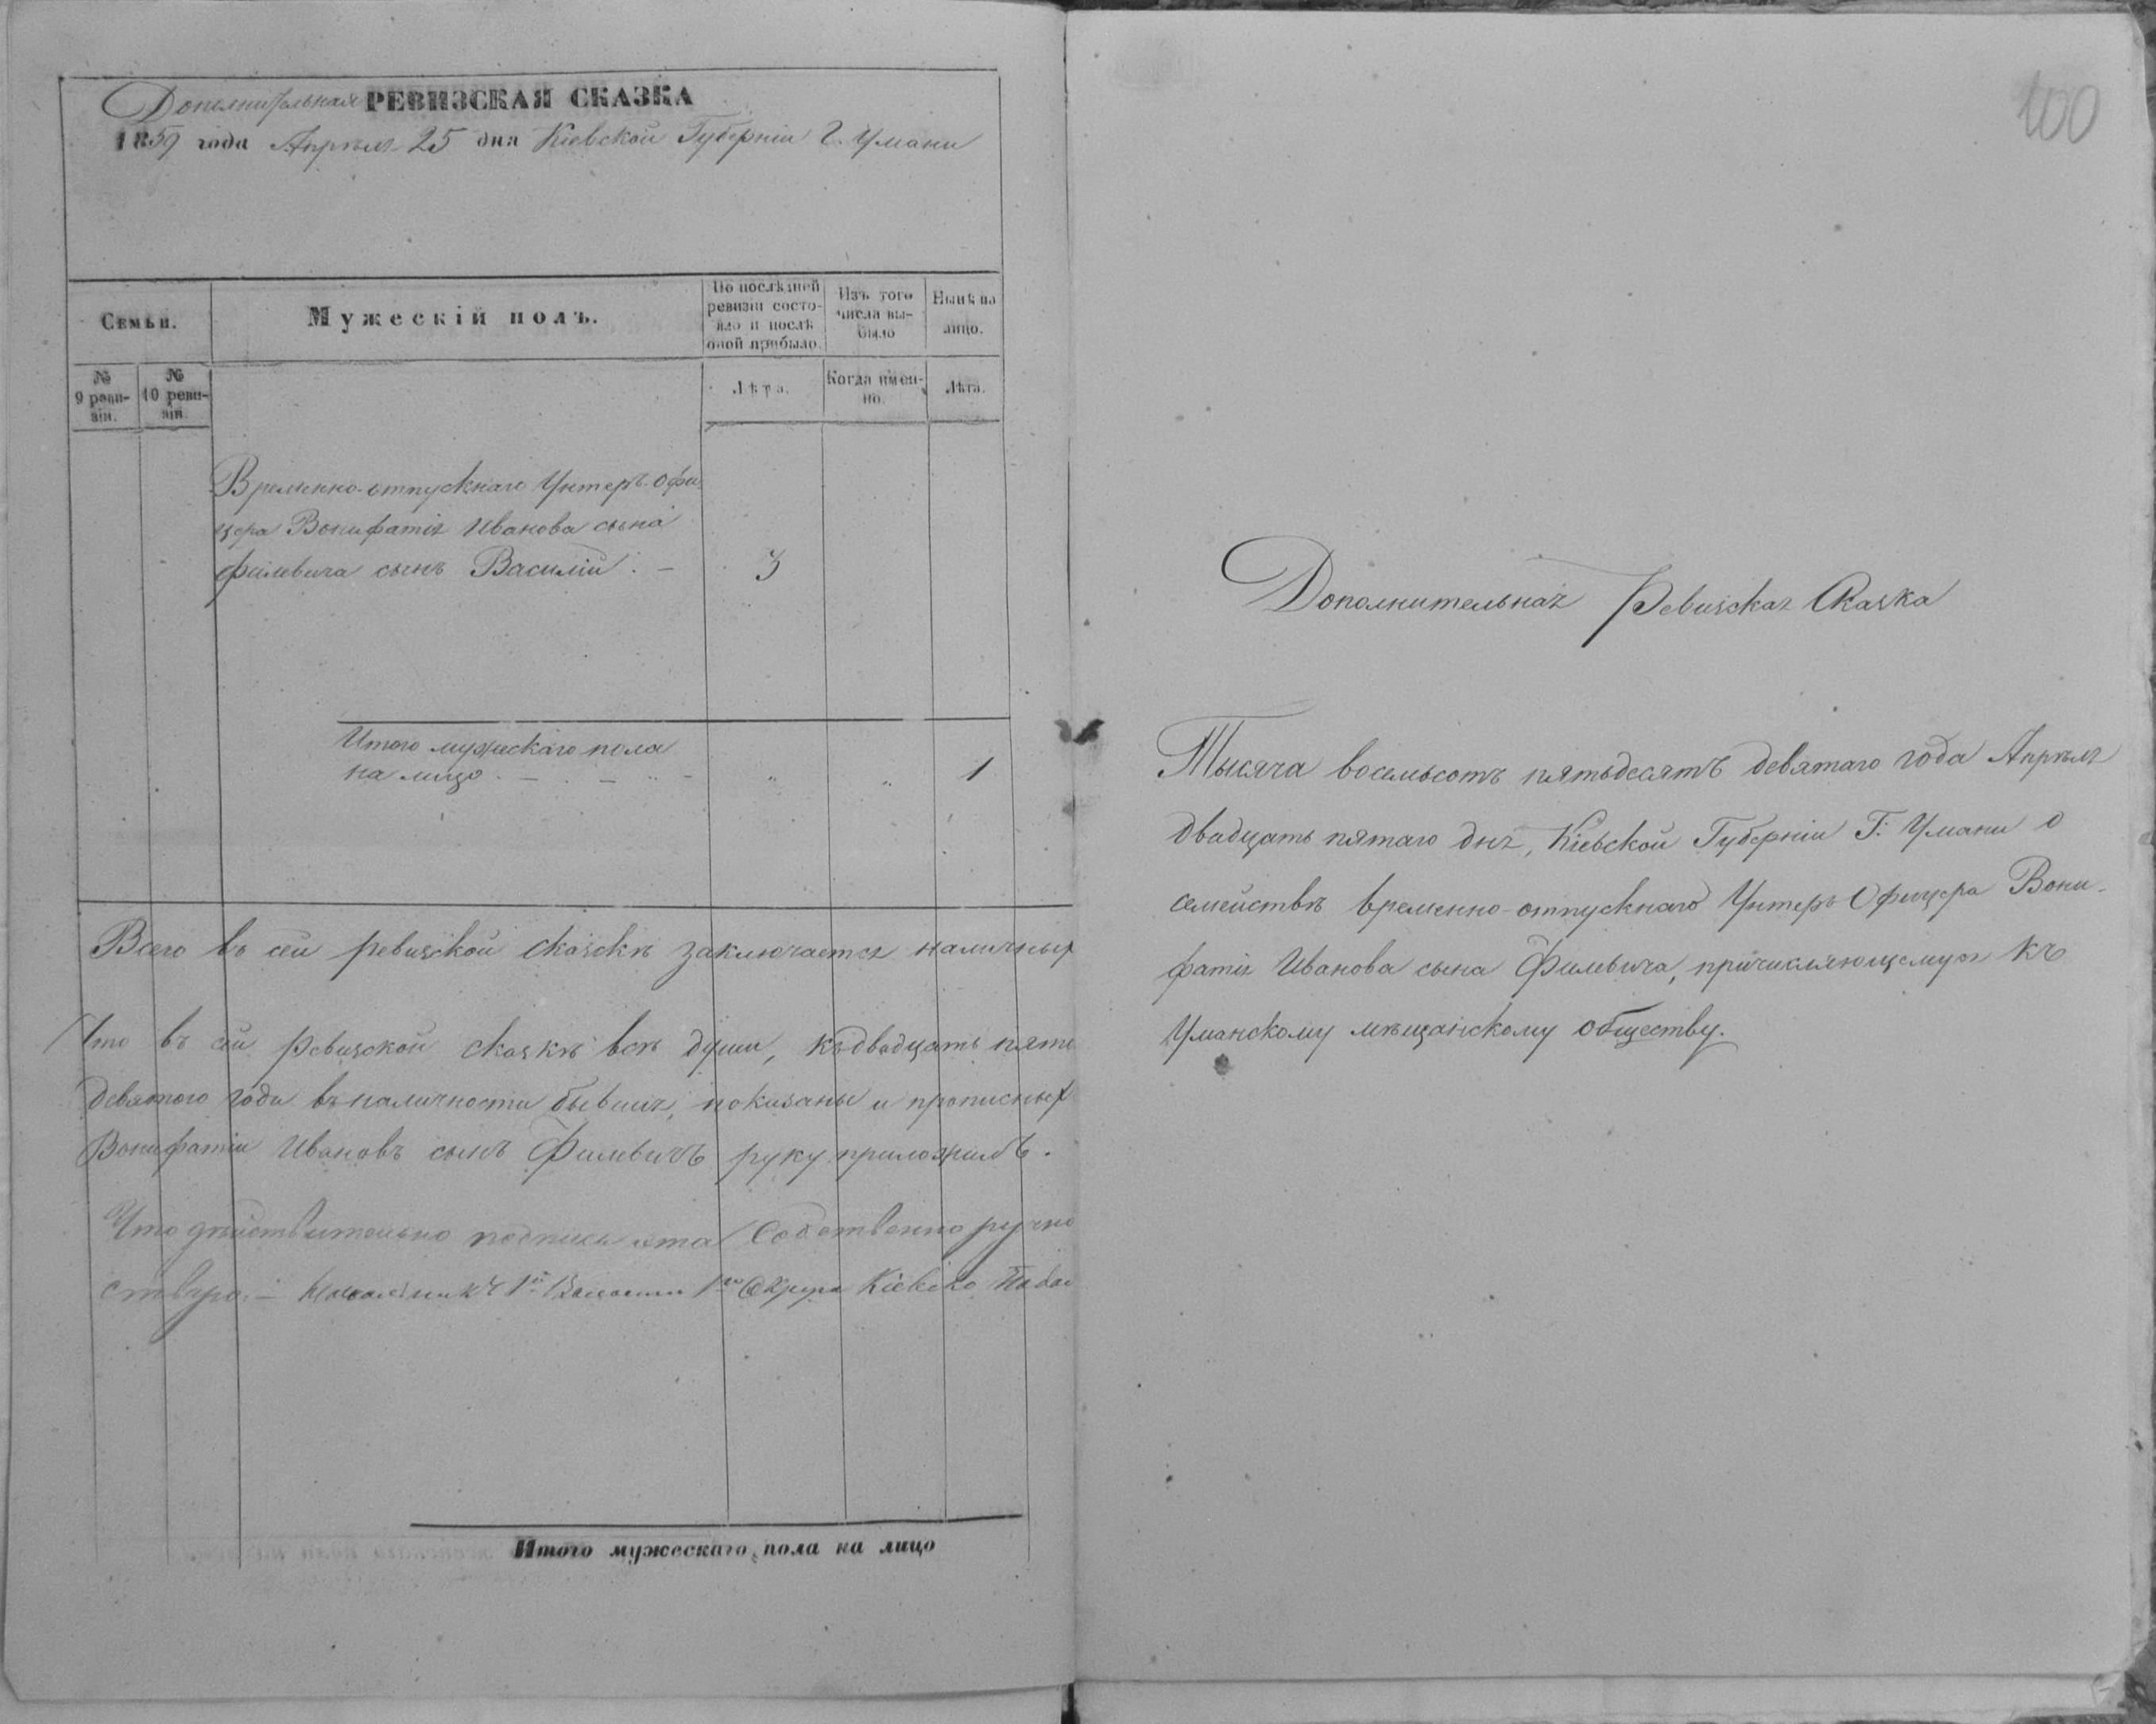 Дополнительная РЕВИЗСКАЯ СКАЗКА
1859 года Апрѣля 25 дня Кіевской Губерніи Г. Умани
Семьи.
Мужескій полъ.
По послѣдней ревизіи состояло и послѣ оной прибыло.
Изъ того числа выбыло
Нынѣ на лицо.
№ 9 ревизіи.
№ 10 ревизіи.
Лѣта.
Когда именно.
Лѣта.
Временно-отпускнаго Унтеръ-Офи
цера Вонифатія Иванова сына
Филевича сынъ Василій. — 3
Итого мужескаго пола
на лицо. — . — „ „ 1
Всего въ сей ревизской сказкѣ заключается наличныхъ
Что въ сей ревизской сказкѣ всѣ души, къ двадцать пято
девятого года въ наличности бывшія, показаны и прописныхъ
Вонифатій Ивановъ сынъ Филевичъ руку приложилъ.
Что дѣйствительно подпись эта Собственноручно
Кіевско
Итого мужескаго пола на лицо
100
Дополнительная Ревизская Сказка
Тысяча восемьсотъ пятьдесятъ девятаго года Апрѣля
двадцать пятаго дня, Кіевской Губерніи Г. Умани о
семействѣ временно-отпускнаго Унтеръ Офицера Вони-
фатія Иванова сына Филевича, причисляющемуся къ
Уманскому мѣщанскому обществу.